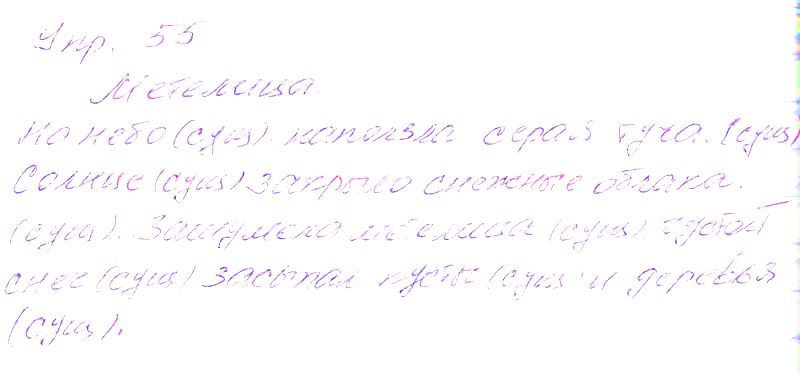 Упр. 55
Метелица.
На небо (сущ). наползла серая туча. (сущ)
Солнце (сущ) закрыло снежные облака.
(сущ). Зашумела метелица (сущ) густой
снег (сущ) засыпал кусты (сущ) и деревья
(сущ).